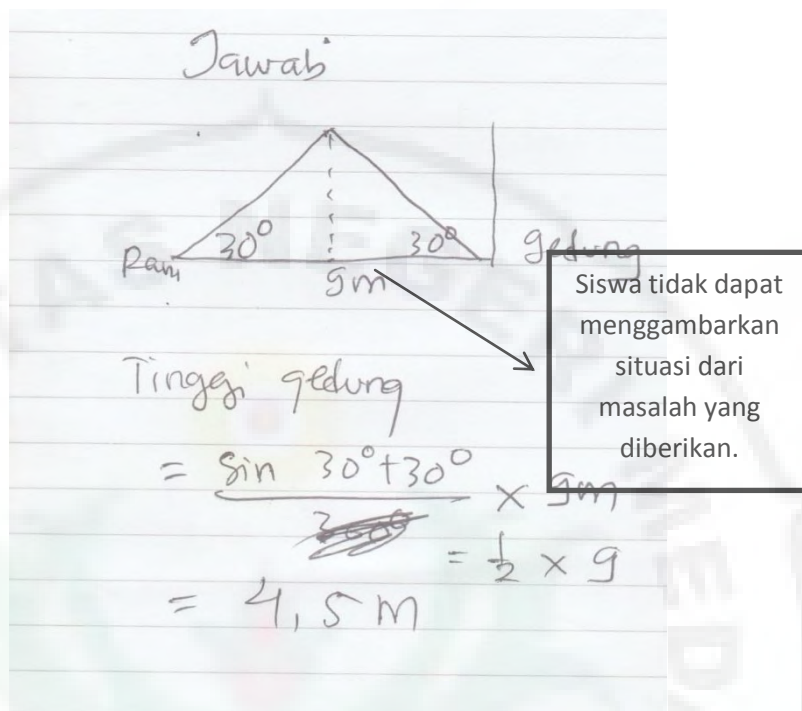 Jawab
30° 30°
Rani 9m gedung
Siswa tidak dapat
menggambarkan
situasi dari
masalah yang
diberikan.
Tinggi gedung
= Sin 30° + 30° × 9m
= 1/2 × 9
= 4,5 m